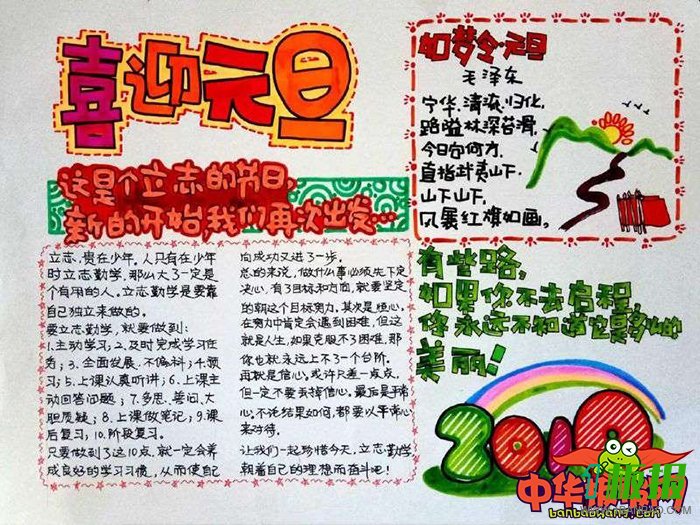 喜迎元旦
这是个立志的节日,
新的开始,我们再次出发…
立志,贵在少年。人只有在少年
时立志勤学,那么大了一定是
个有用的人。立志勤学是要靠
自己独立来做的。
要立志勤学,就要做到:
1.主动学习;2.及时完成学习任
务;3.全面发展、不偏科;4.预
习;5.上课认真听讲;6.上课主
动回答问题;7.多思、善问、大
胆质疑;8.上课做笔记;9.课
后复习;10.阶段复习。
只要做到了这10点,就一定会养
成良好的学习习惯,从而使自己
向成功又进了一步。
总的来说,做什么事必须先下定
决心,有了目标和方向,就要坚定
的朝这个目标努力。其次是恒心,
在努力中肯定会遇到困难,但这
就是人生,如果克服不了困难,那
你也就永远上不了一个台阶。
再就是信心,或许只差一点点,
但一定不要丢掉信心。最后是平常
心,不论结果如何,都要以平常心
来对待。
让我们一起珍惜今天,立志勤学
朝着自己的理想而奋斗吧!
如梦令·元旦
毛泽东
宁化、清流、归化,
路隘林深苔滑,
今日向何方,
直指武夷山下,
山下山下,
风展红旗如画。
有些路,
如果你不去启程,
你永远不知道它是多么的
美丽!
2010
中华板报网
banbaowang.com